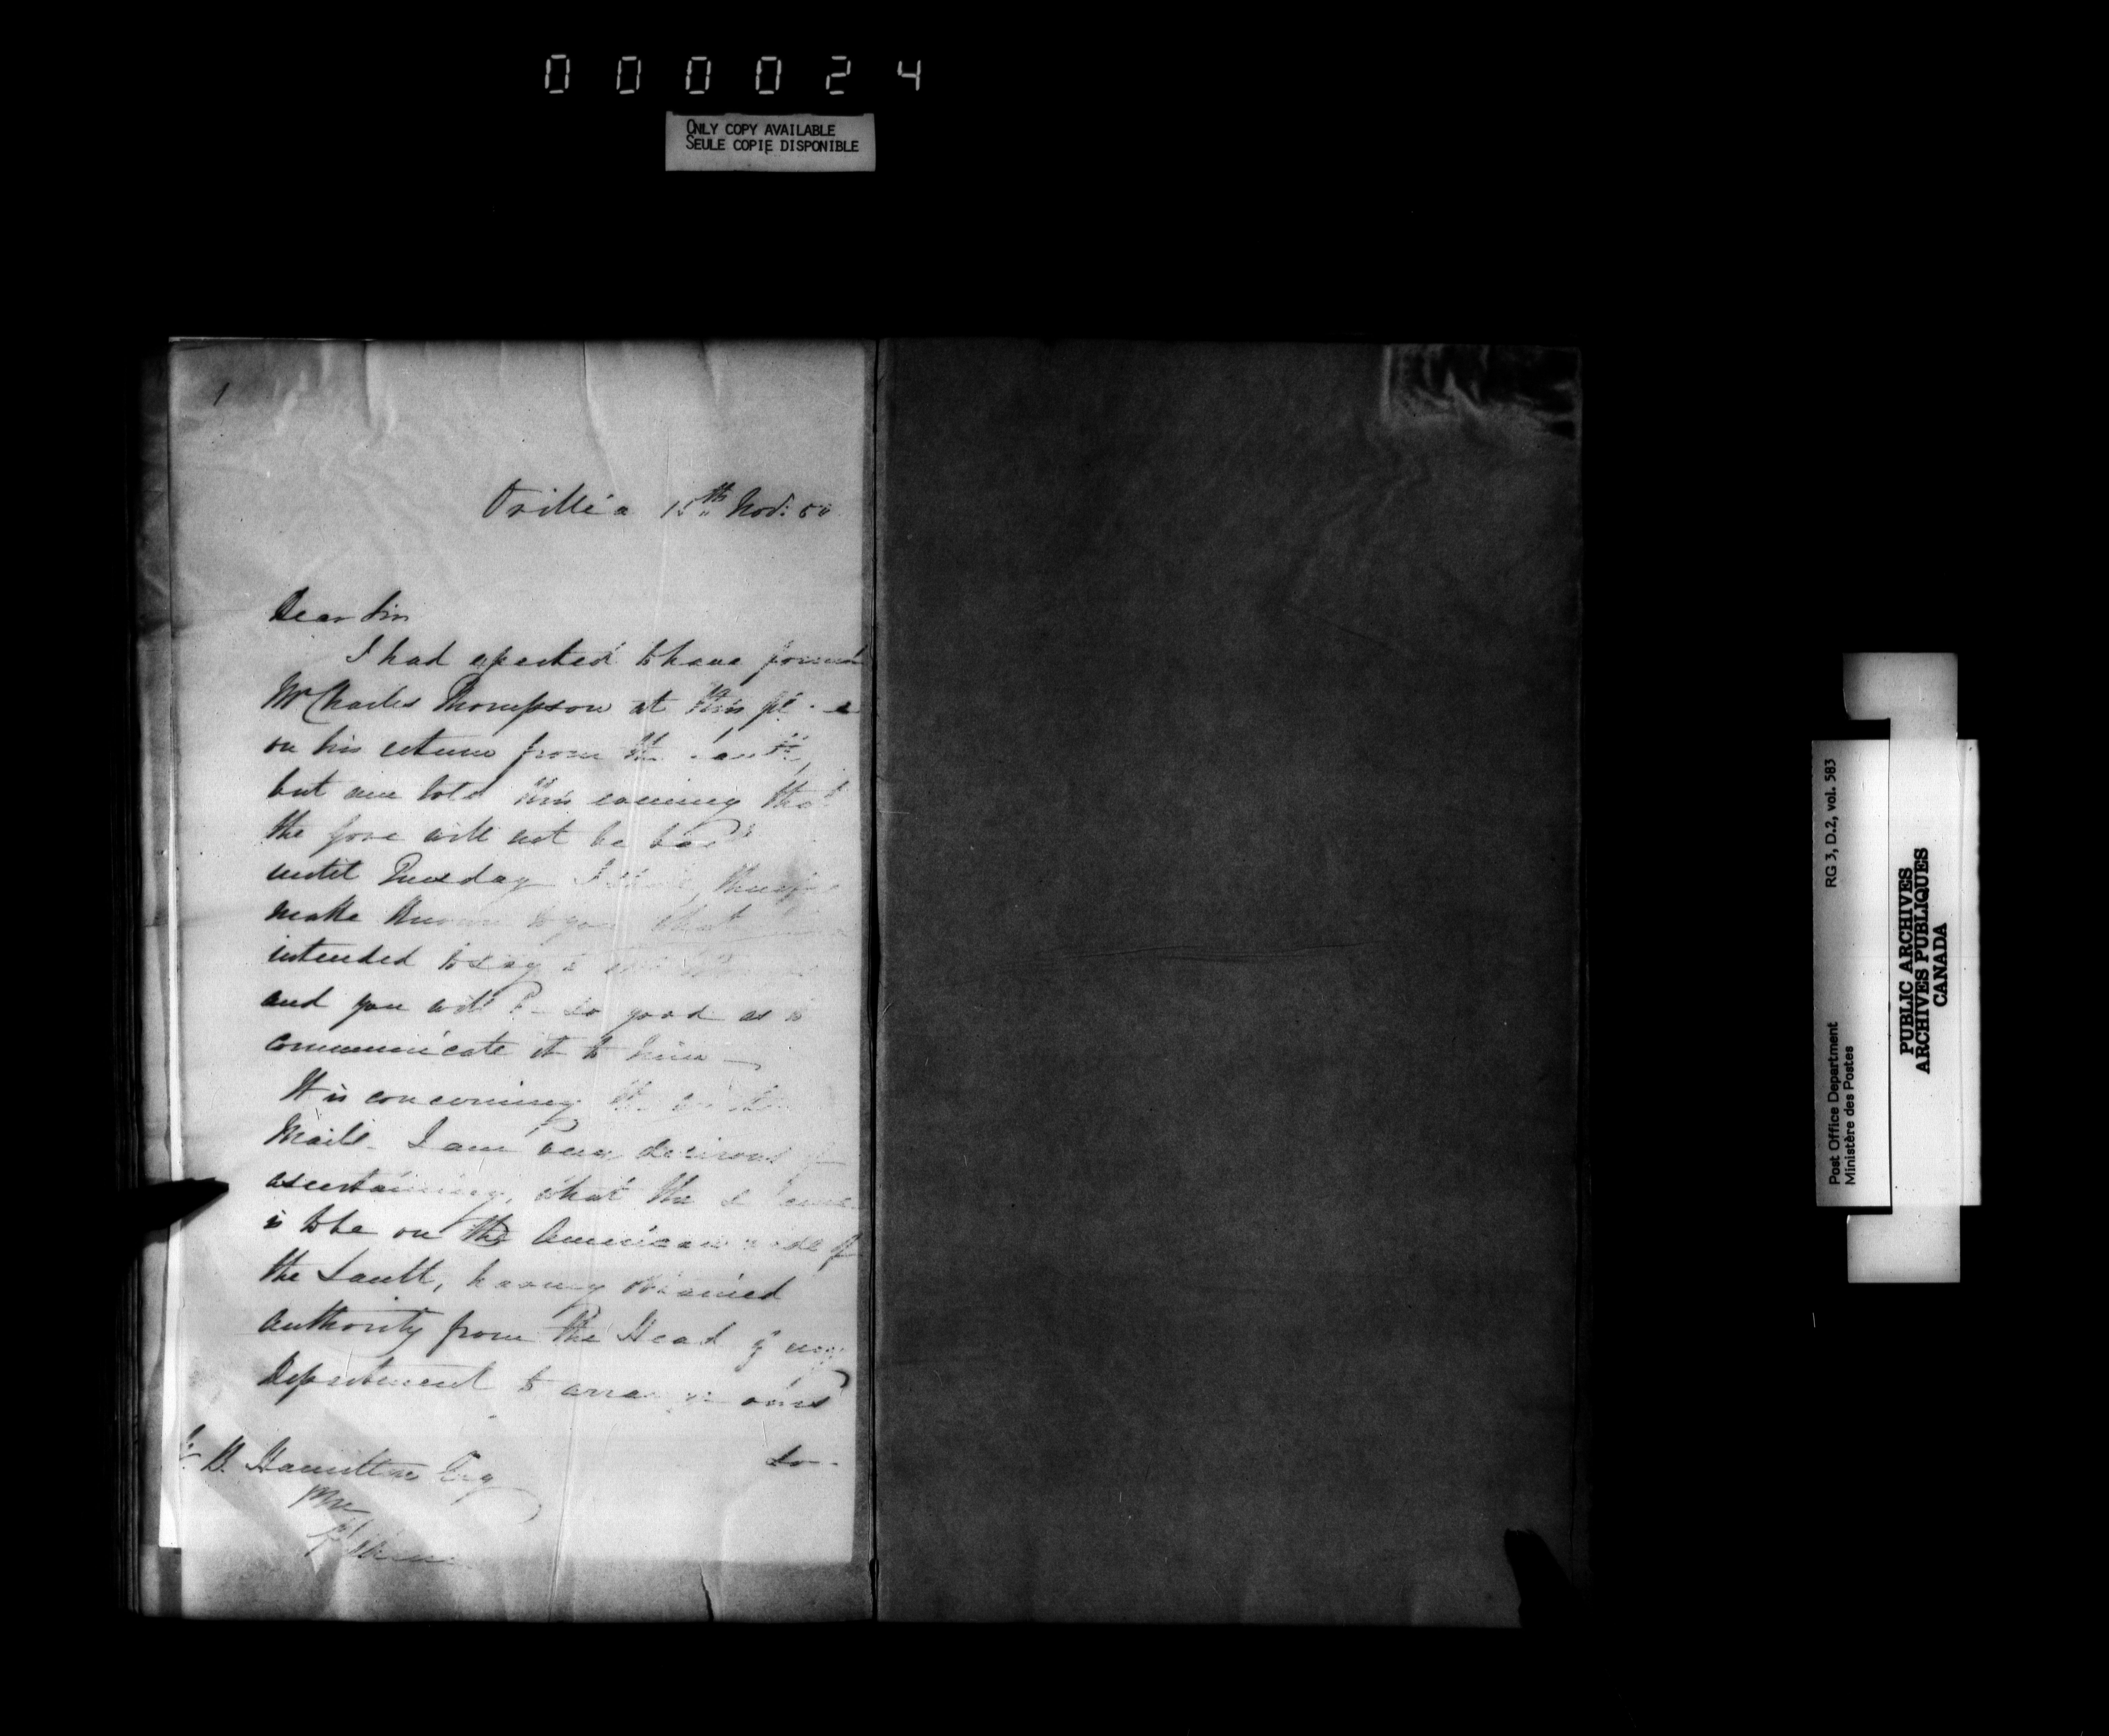 000024
ONLY COPY AVAILABLE
SEULE COPIE DISPONIBLE
1
Orillia 15th Nov: 50
Dear Sir
I had expected to have found
Mr Charles Thompson at this
on his return from the Sault,
but am told this evening that
the Jore will not be back
until Tuesday I shall, therefore
make known to you what
intended to say to
and you will be so good as to
communicate it to him —
It is concerning the
Mails. I am very desirous of
ascertaining, what the
is to be on the American side of
the Sault, having obtained
authority from the Head of my
Department to arrange
do-
B. Hamilton Esq
PM
RG 3, D.2, vol. 583
Post Office Department
Ministère des Postes
PUBLIC ARCHIVES
ARCHIVES PUBLIQUES
CANADA